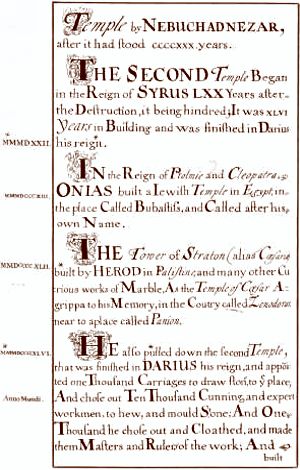 Temple by NEBUCHADNEZAR,
after it had stood ccccxxx. years.
THE SECOND Temple Began
in the Reign of SYRUS LXX Years after
the Destruction, it being hindred; It was XLVI
Years in Building and was finished in Darius
MMMD.XXII. his reign.
IN the Reign of Ptolmie and Cleopatra,
ONIAS built a Iewish Temple in Egypt, in
the place Called Bubastiss, and Called after his
own Name.
THE Tower of Straton (alias Cæsaria)
built by HEROD in Palistine, and many other Cu
rious works of Marble, As the Temple of Cæsar A=
grippa to his Memory, in the Coutry called Zenodorus
near to a place called Panion.
HE also pulled down the second Temple,
that was finished in DARIUS his reign, and appoin
ted one Thousand Carriages to draw stons, to ye place,
Anno Mundi. And chose out Ten Thousand Cunning, and expert
workmen, to hew, and mould Stone: And One
Thousand he chose out and Cloathed, and made
them Masters and Rulers of the work; And
built